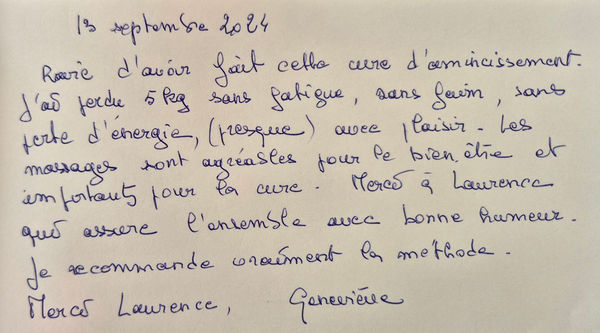 13 septembre 2024
Ravie d'avoir fait cette cure d'amincissement.
J'ai perdu 5kg sans fatigue, sans faim, sans
perte d'énergie, (presque) avec plaisir. Les
massages sont agréables pour le bien être et
importants pour la cure. Merci à Laurence
qui assure l'ensemble avec bonne humeur.
Je recommande vraiment la méthode.
Merci Laurence, Geneviève